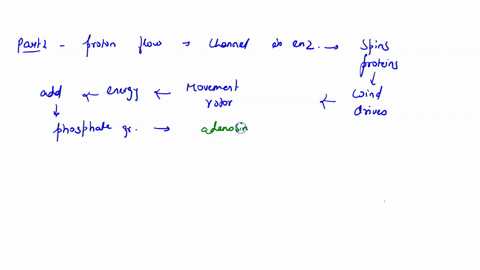 Part 2 - proton flow → channel in enz. → spins
proteins
↓
add ← energy ← Movement rotor ← wind drives
↓
phosphate gr. → adenosin